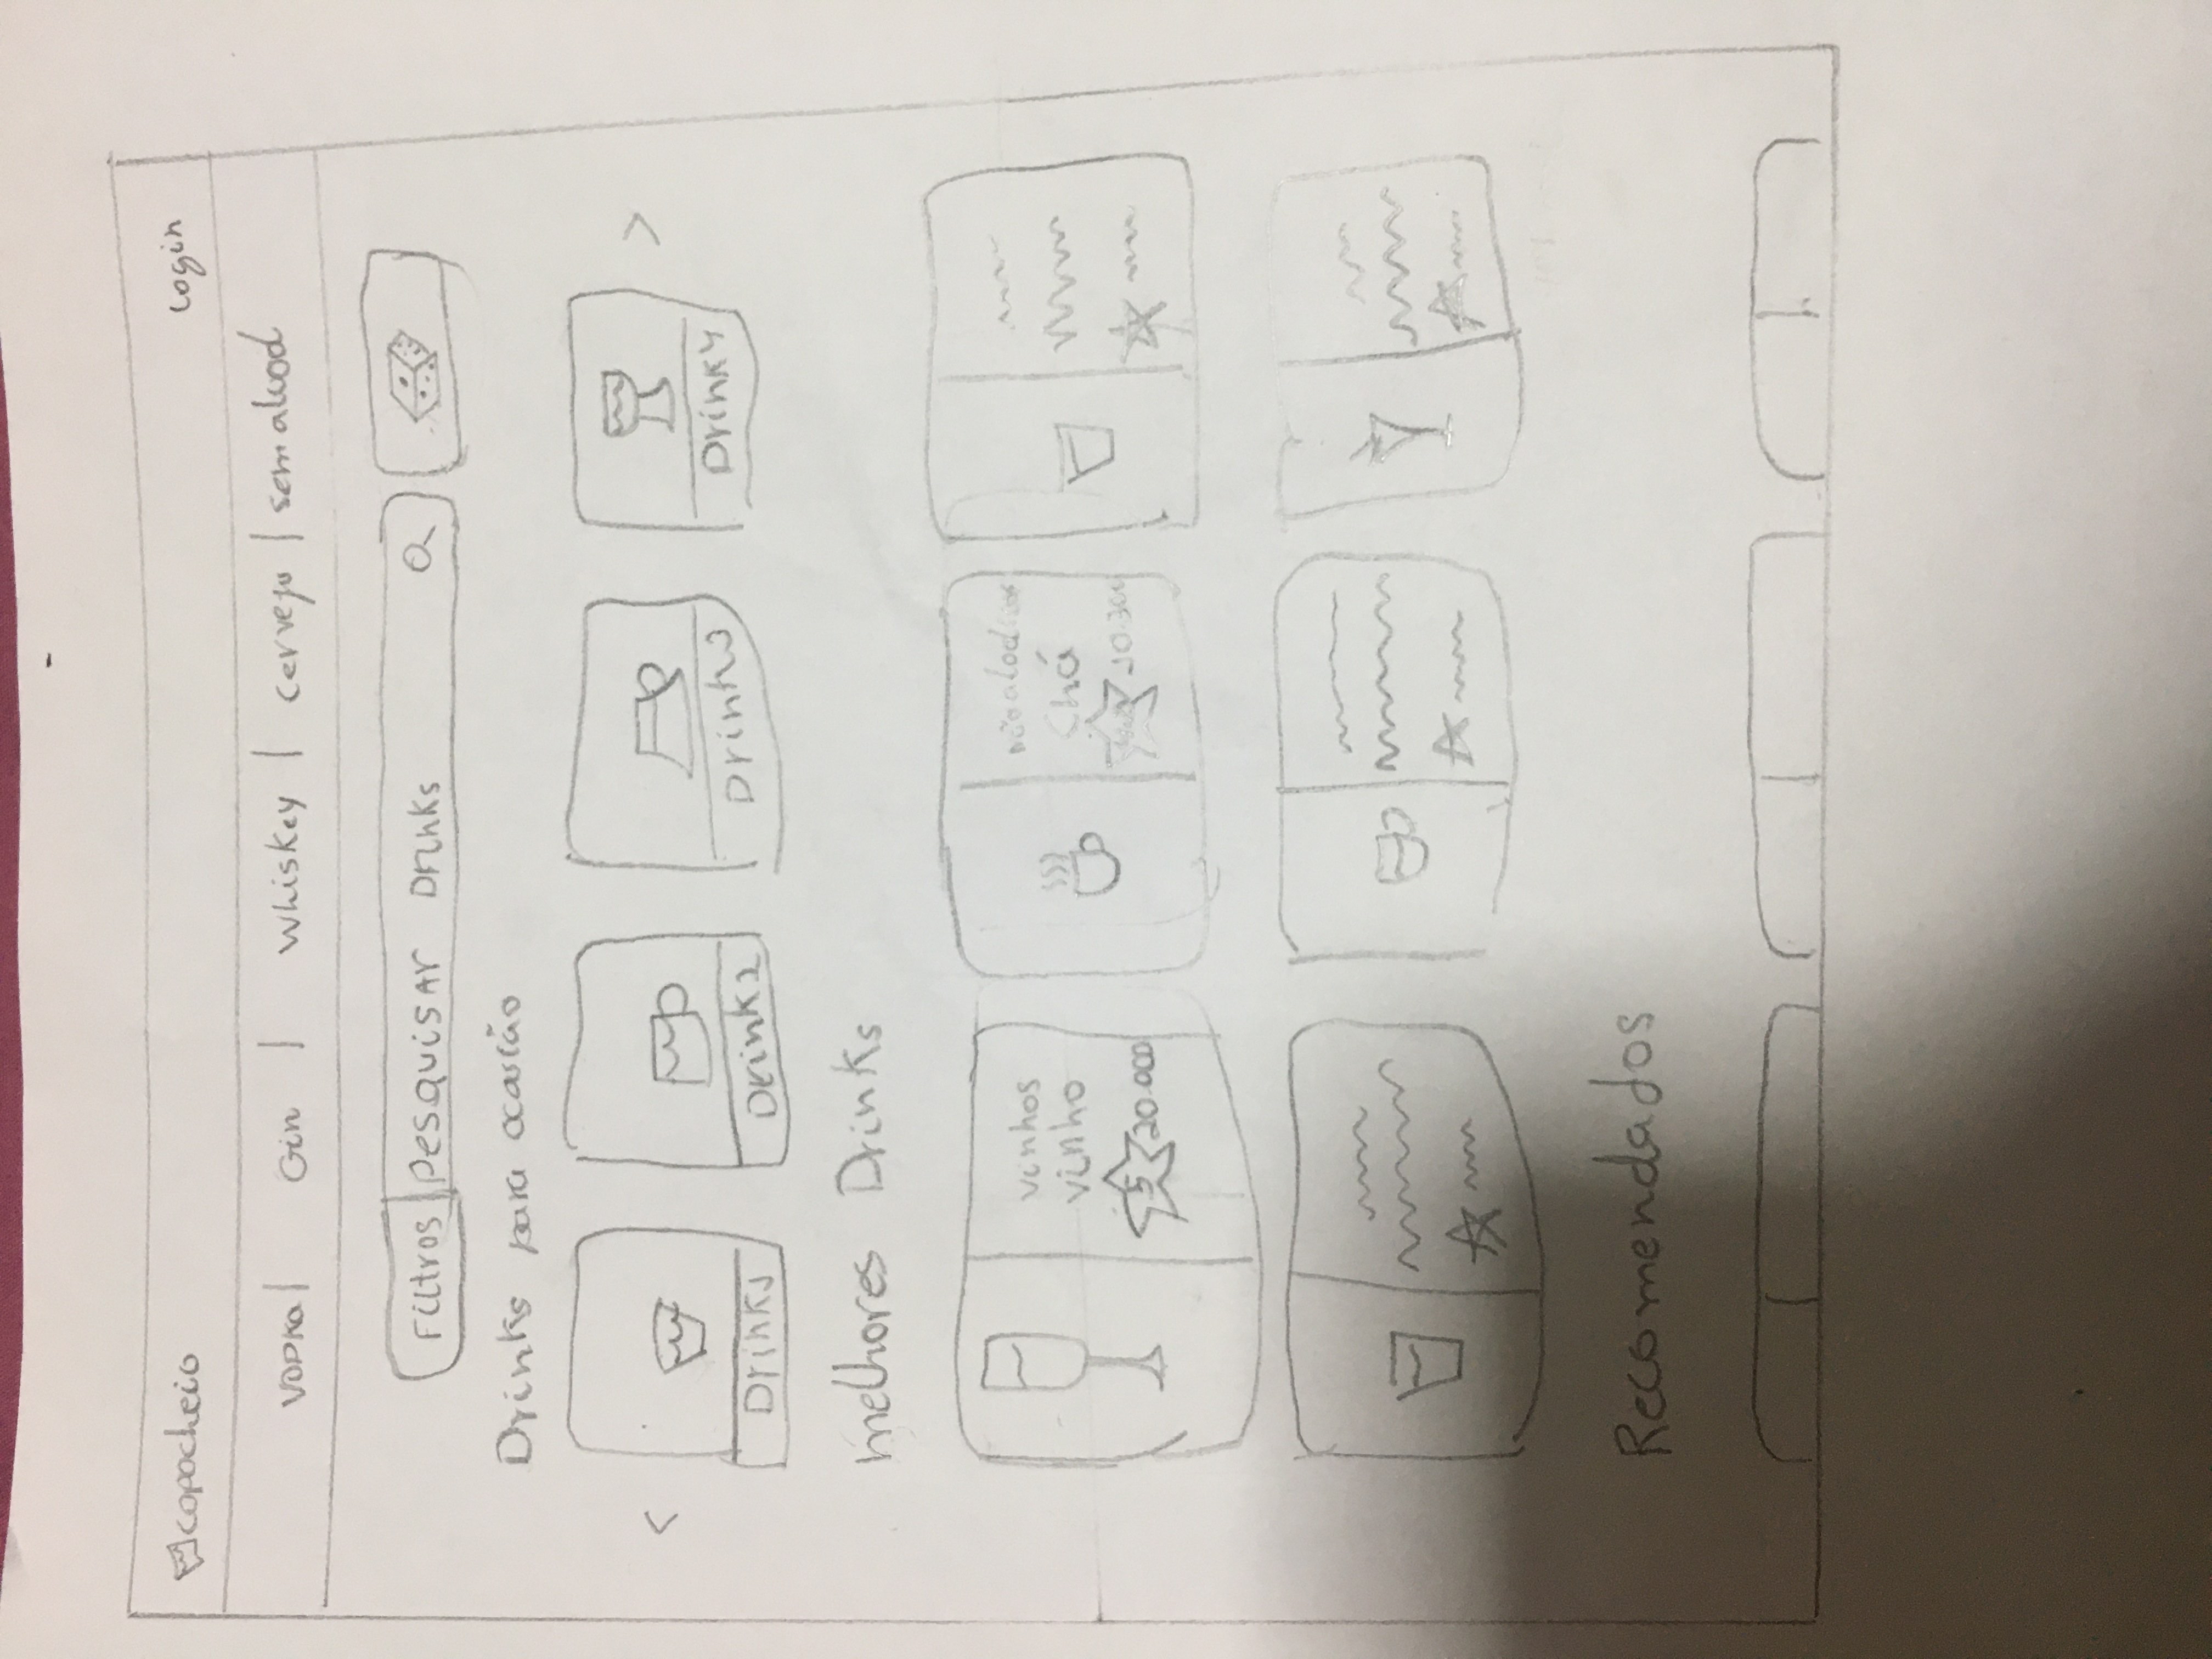 copocheio login
Vodka | Gin | Whiskey | cerveja | sem alcool
Filtros | Pesquisar Drinks
Drinks para ocasião
< >
Drink1 Drink2 Drink3 Drink4
melhores Drinks
vinhos
vinho
5 20.000
não alcolicos
Chá
Recomendados